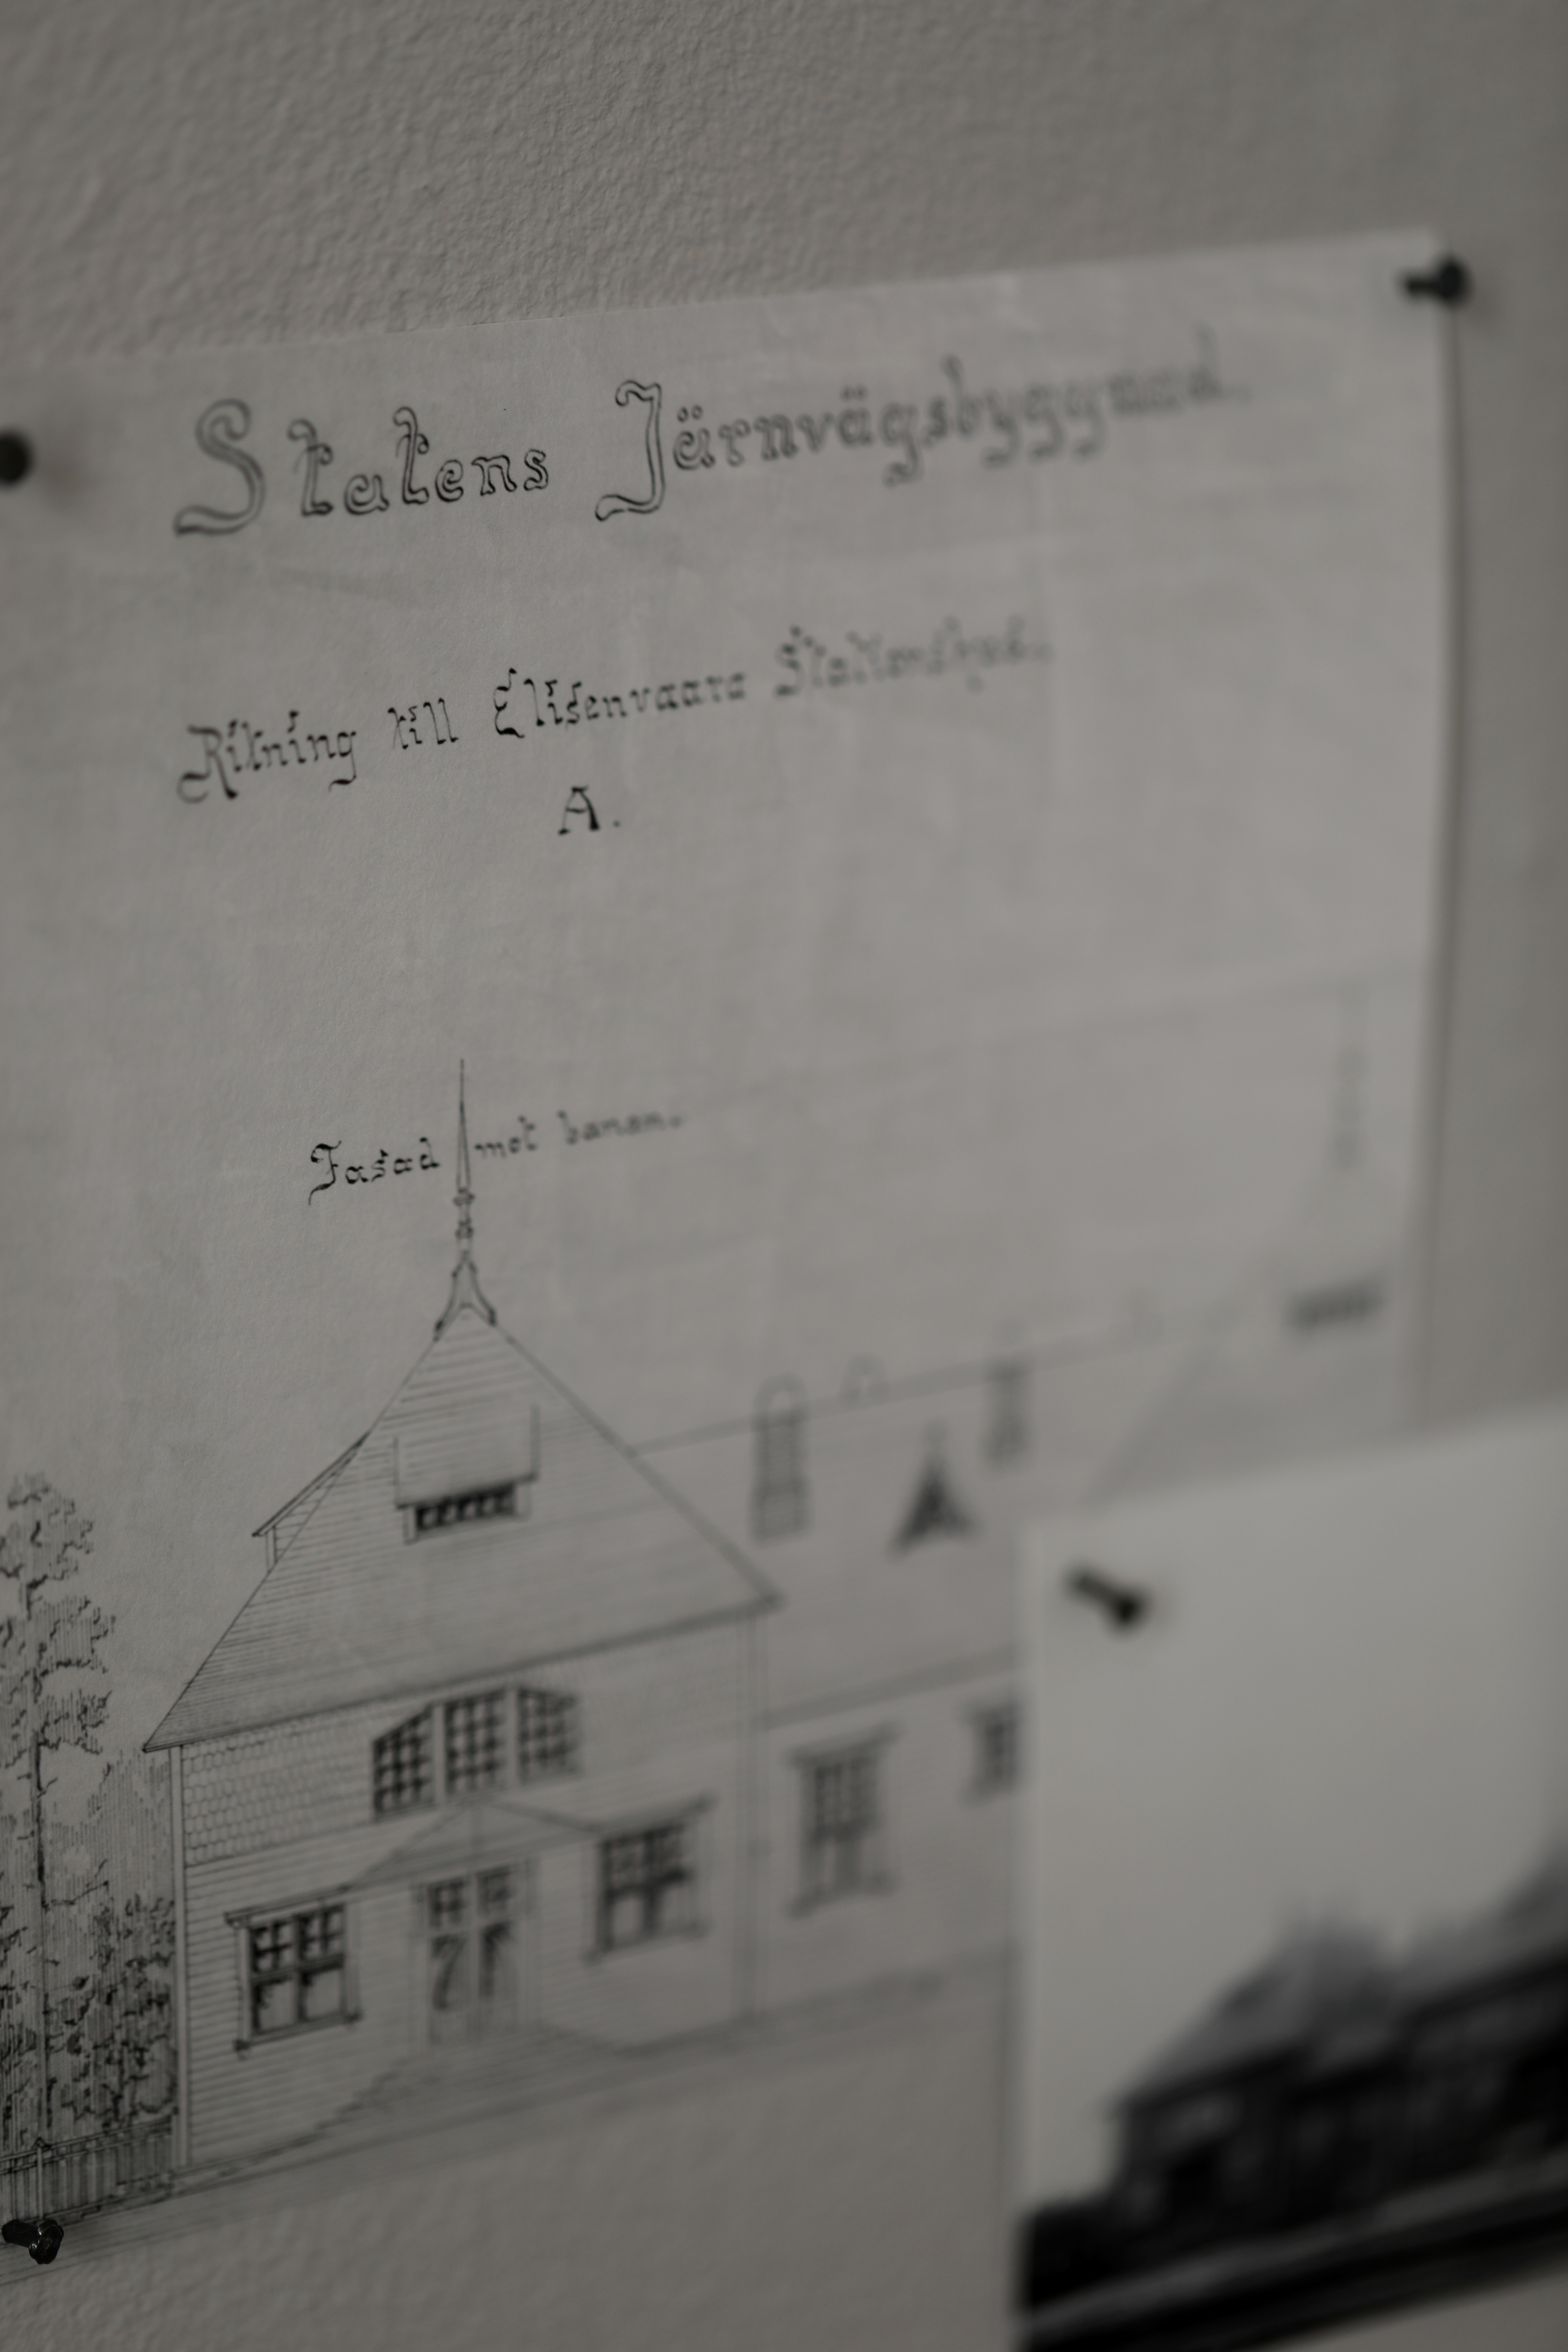 Statens Järnvägsbyggnad.
Ritning till Elisenvaara Stationshus.
A.
Fasad mot banan.